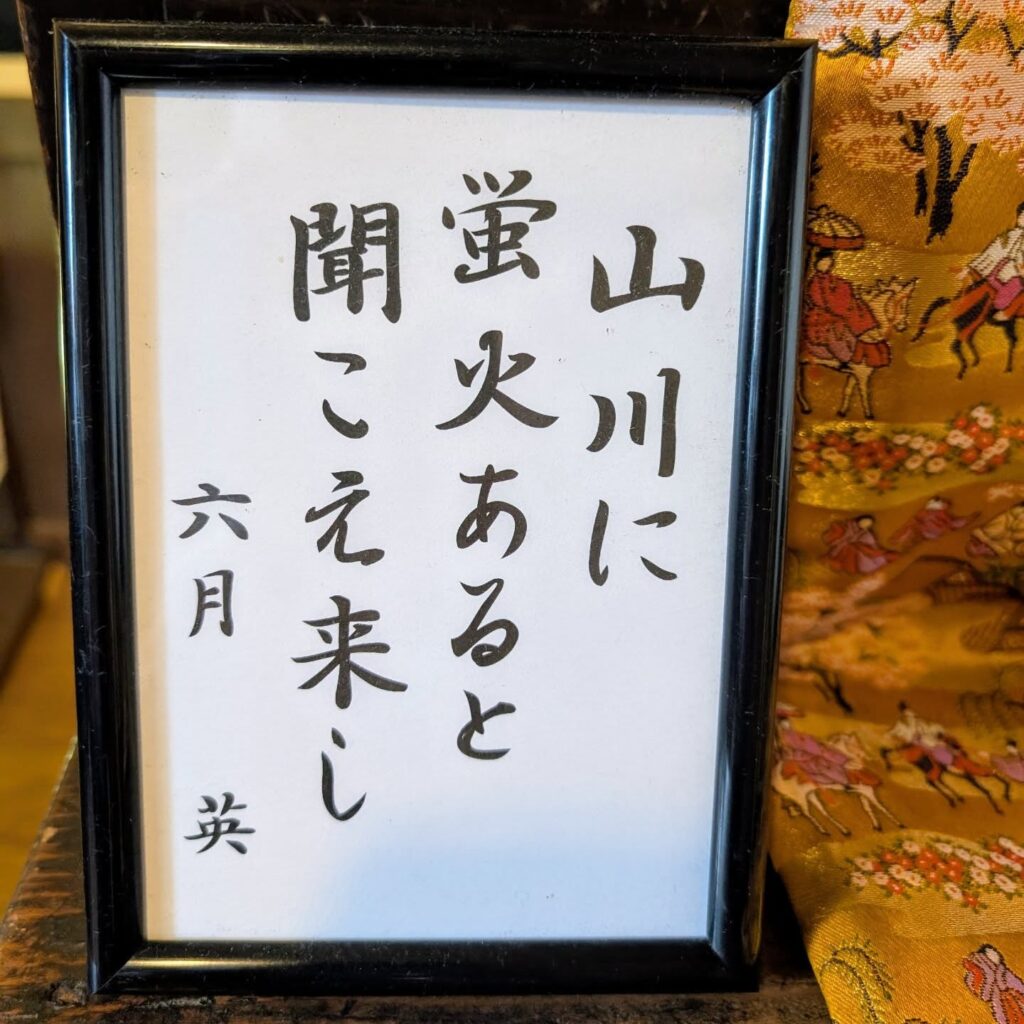 山川に
蛍火あると
聞こえ来し
六月 英